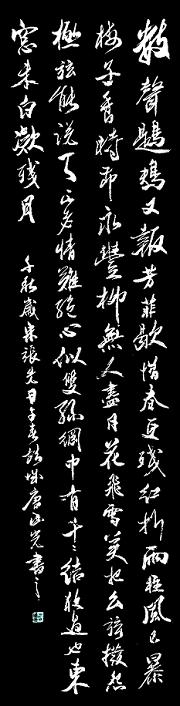 數聲鶗鴂又報芳菲歇惜春更殘紅折雨狂風色暴
梅子青時節永豐柳無人盡日花飛雪莫把幺弦撥怨
極弦能说天不老情難絕心似雙絲網中有千千結夜過也東
窗未白凝殘月
千秋歲宋張先 春 城唐 書之